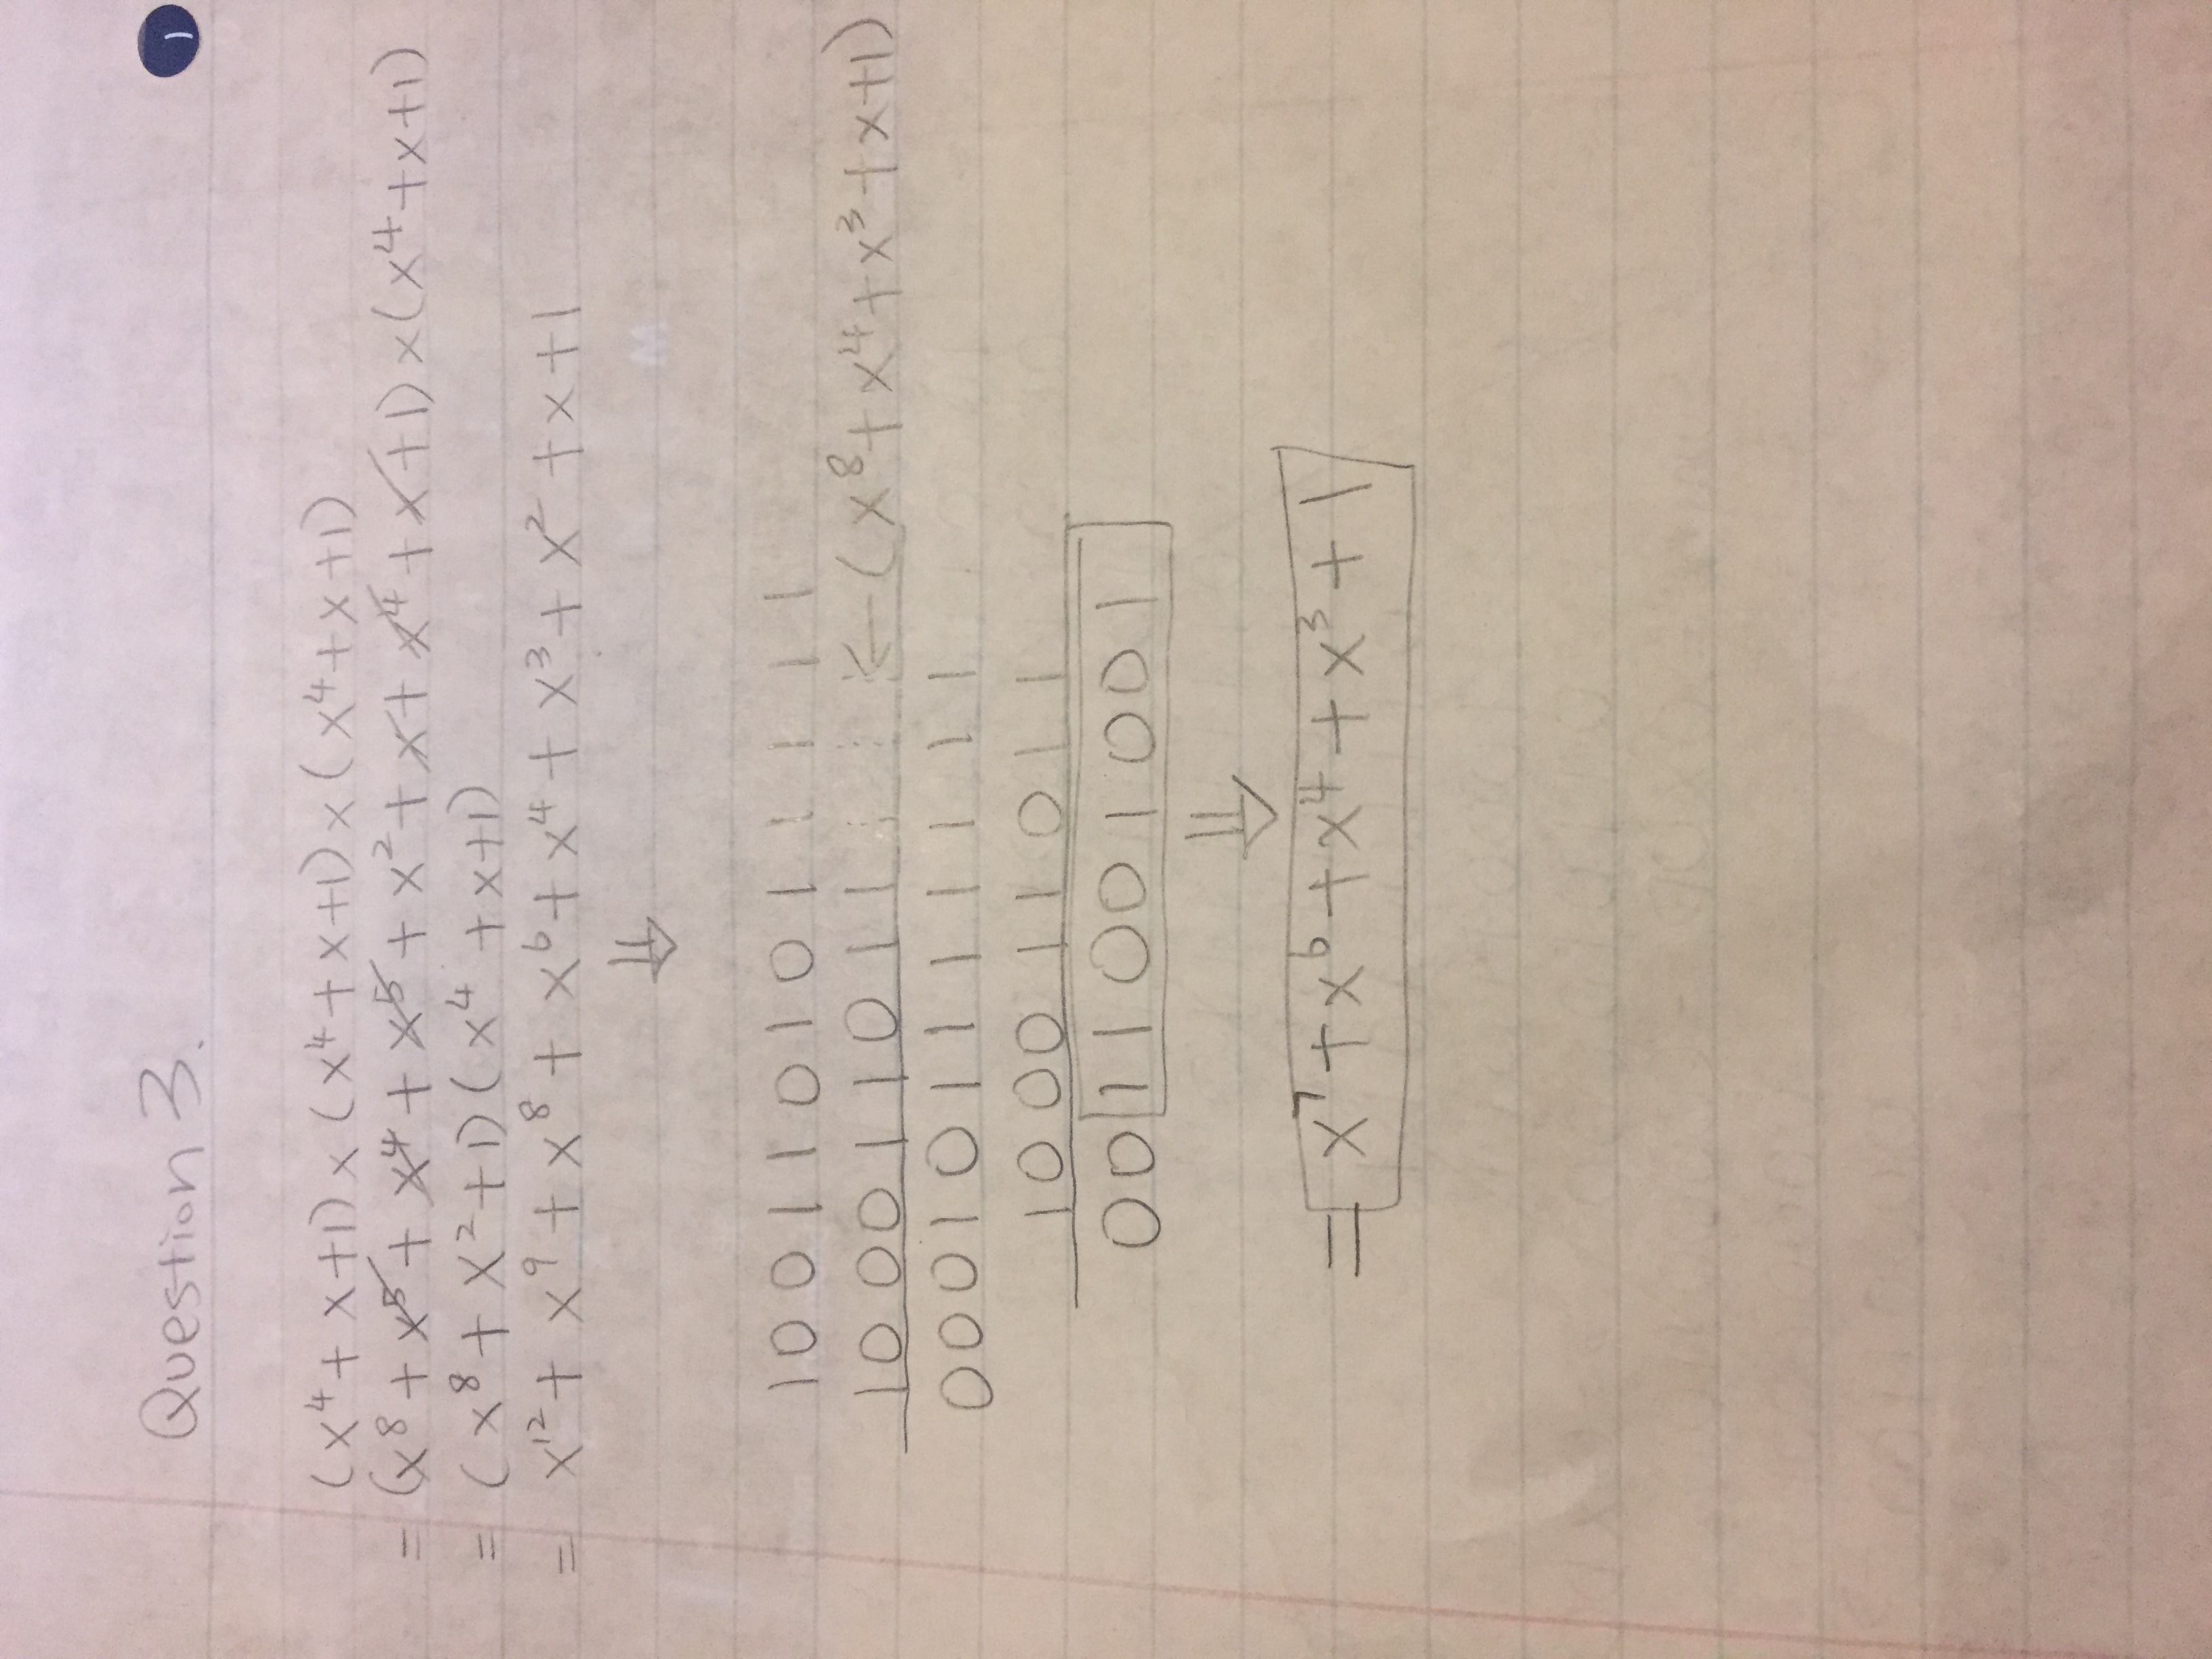 1
Question 3.
(x⁴+x+1)x(x⁴+x+1)x(x⁴+x+1)
=(x⁸+x⁵+x⁴+x⁵+x²+x+x⁴+x+1)x(x⁴+x+1)
=(x⁸+x²+1)(x⁴+x+1)
=x¹²+x⁹+x⁸+x⁶+x⁴+x³+x²+x+1
⇓
1 0 0 1 1 0 1 0 1 1 1 1 1
1 0 0 0 1 1 0 1 1 ← (x⁸+x⁴+x³+x+1)
0 0 0 1 0 1 1 1 1 1 1 1
1 0 0 0 1 1 0 1 1
0 0 1 1 0 0 1 0 0 1
⇓
= x⁷+x⁶+x⁴+x³+1